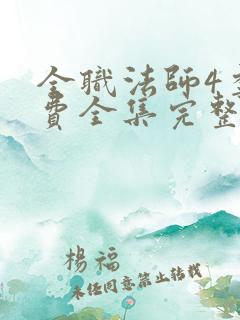 全職法師4季
費全集完整
楊福
未经同意禁止转载